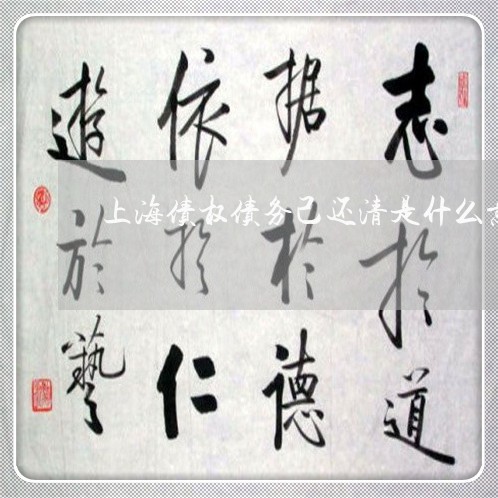 志於道
据於德
依於仁
遊於藝
上海债权债务己还清是什么